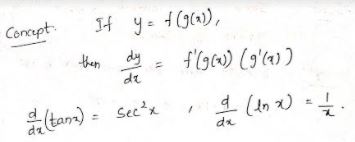 Concept. If y = f(g(x)),
then dy/dx = f'(g(x)) (g'(x))
d/dx (tanx) = sec²x , d/dx (ln x) = 1/x.